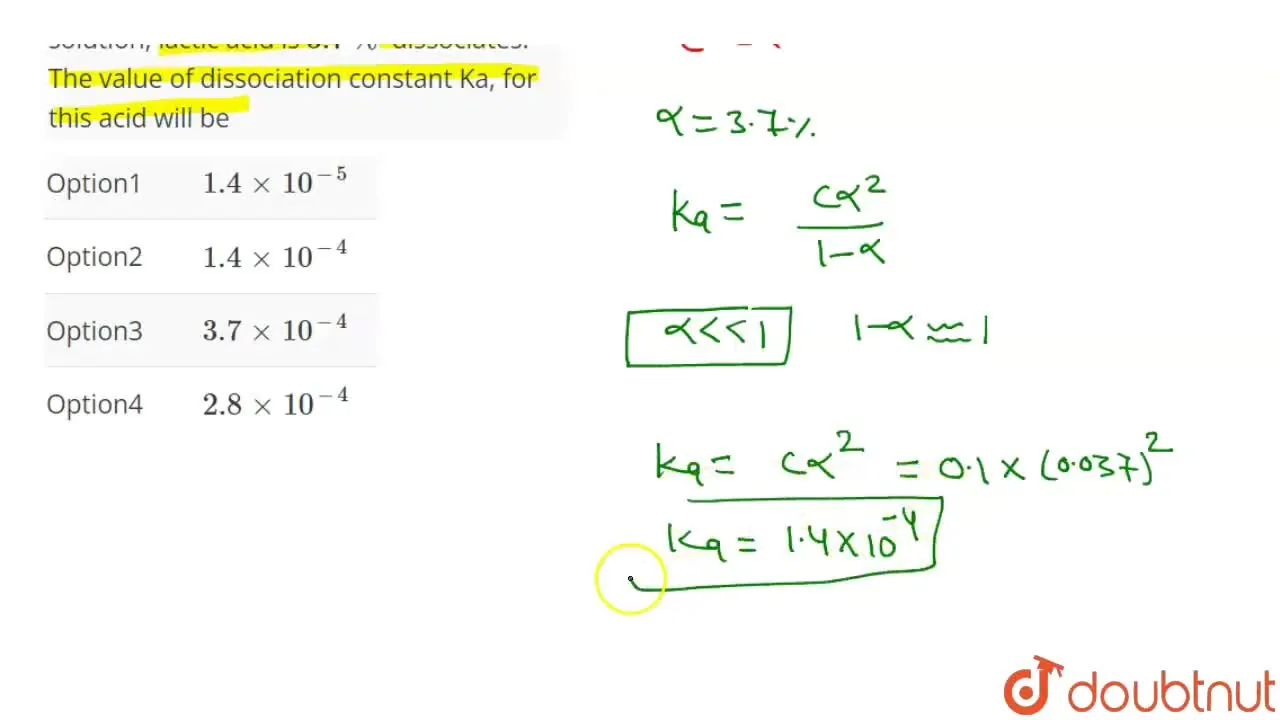 The value of dissociation constant Ka, for
this acid will be
Option1 1.4 × 10⁻⁵
Option2 1.4 × 10⁻⁴
Option3 3.7 × 10⁻⁴
Option4 2.8 × 10⁻⁴
α = 3.7%
Ka = Cα² / 1-α
α<<<1 1-α ≈ 1
Ka = Cα² = 0.1 × (0.037)²
Ka = 1.4×10⁻⁴
doubtnut